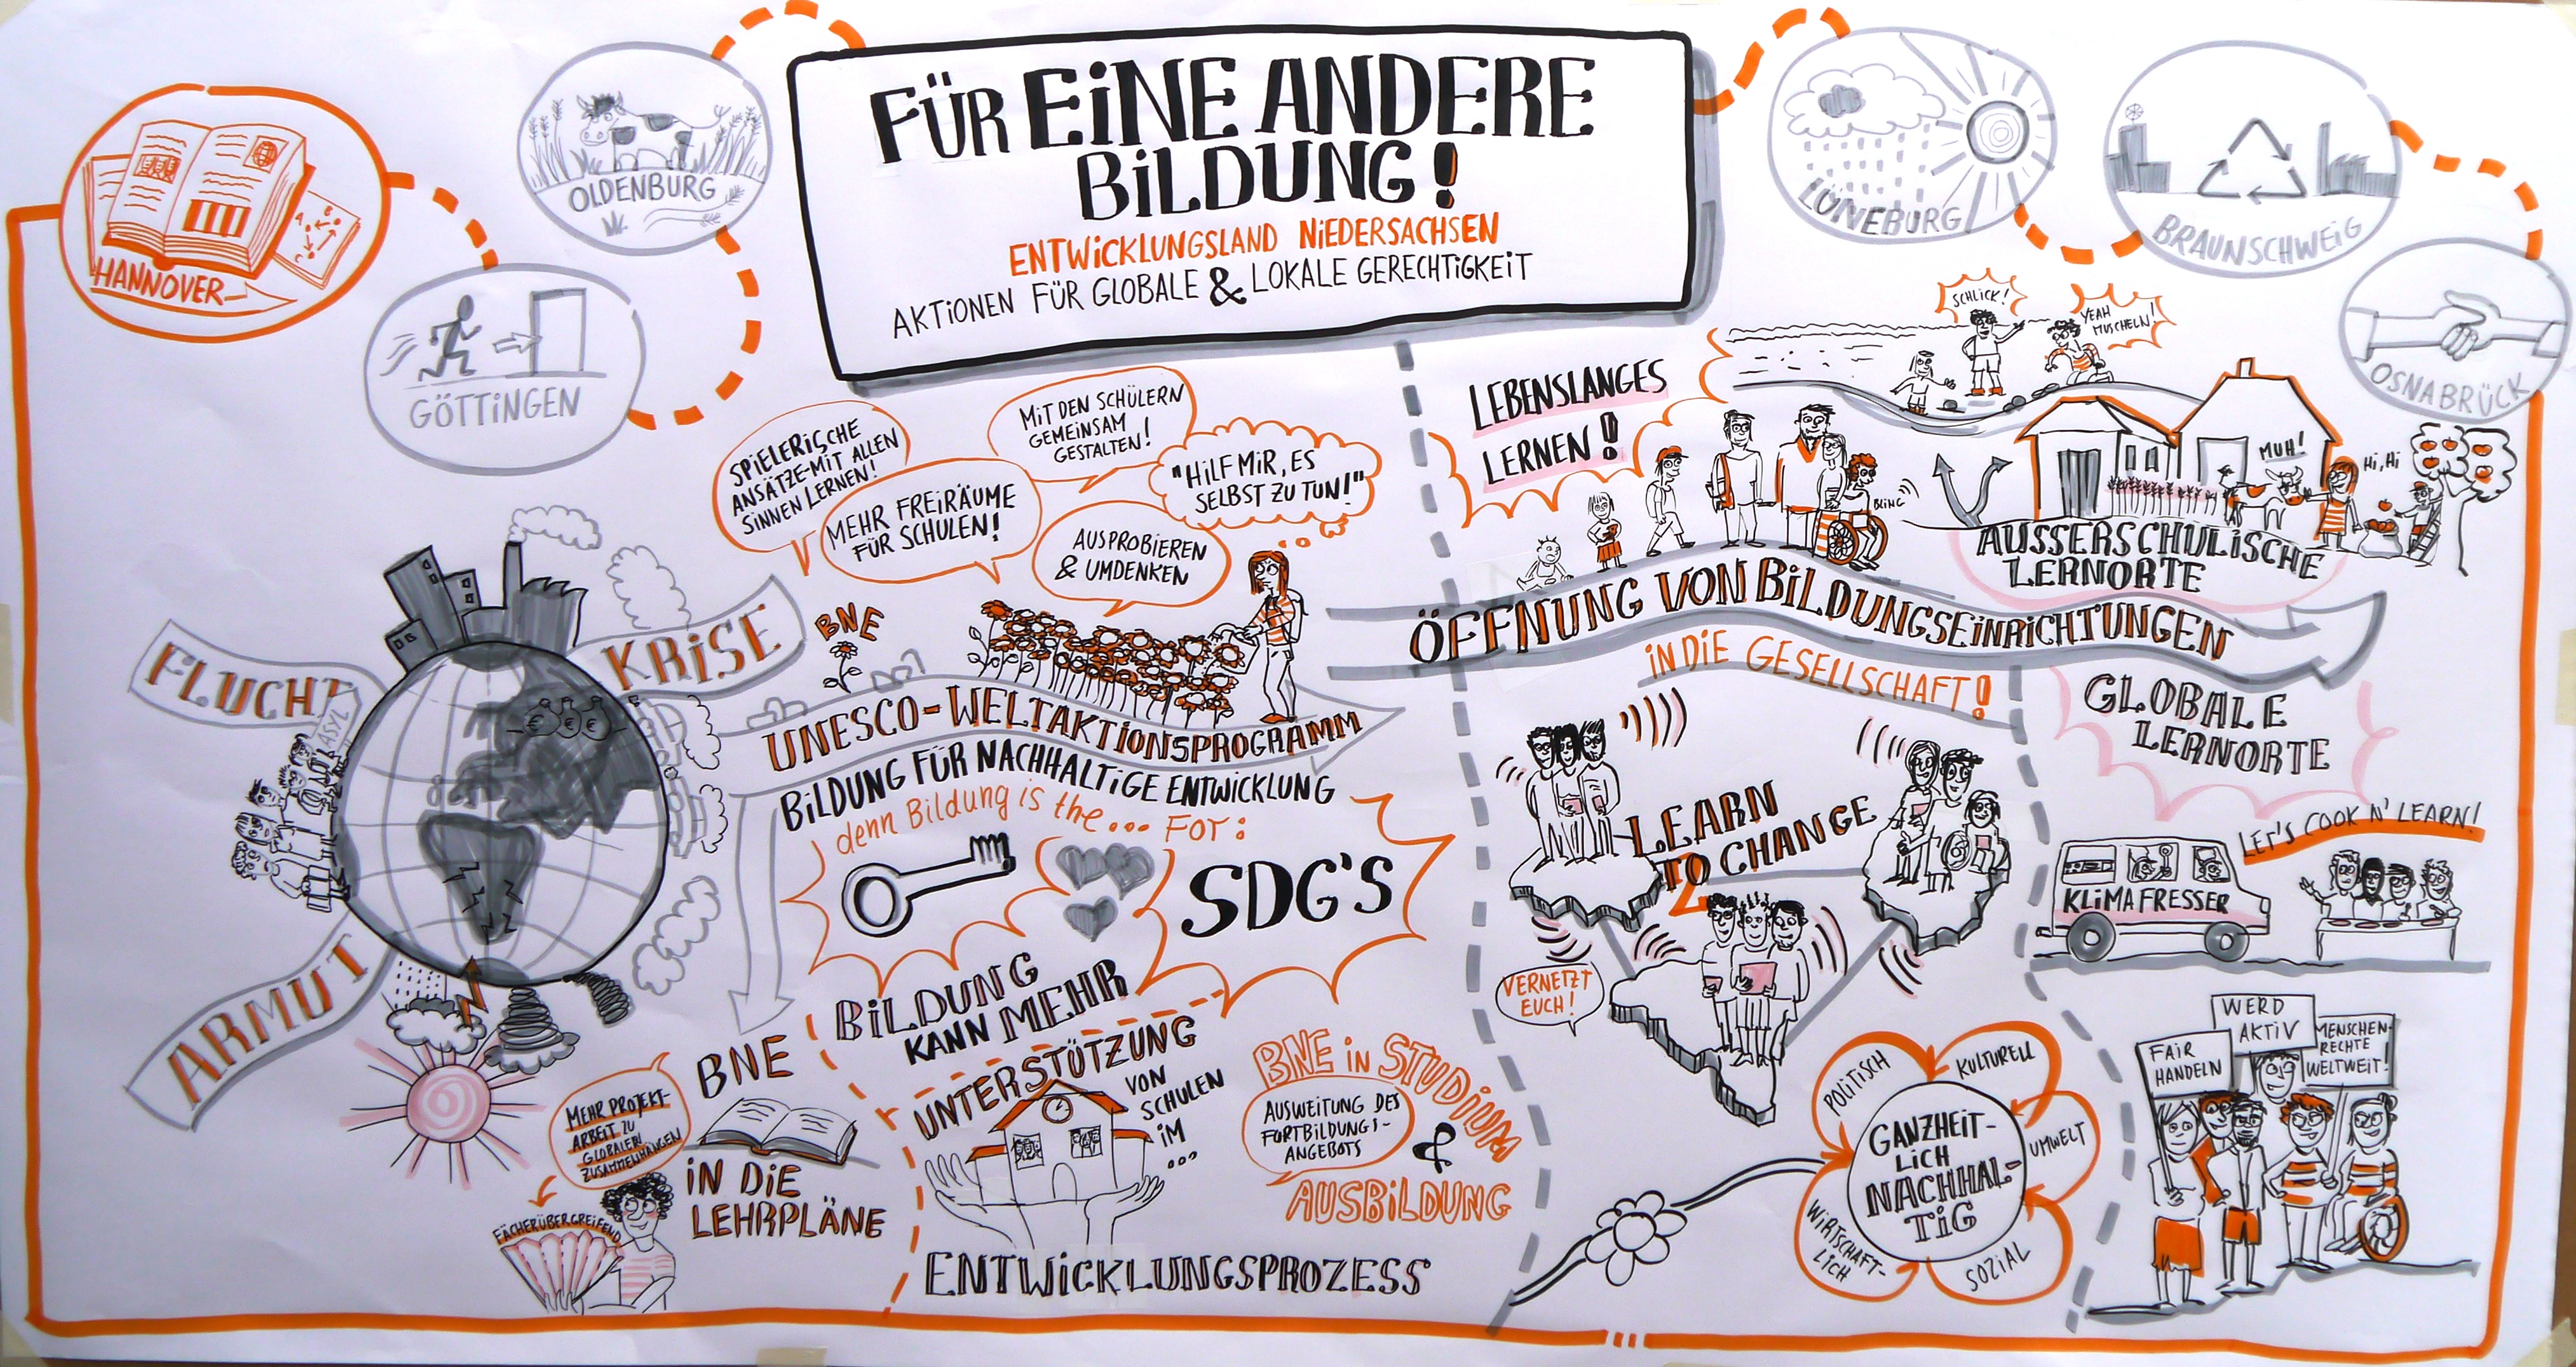 FÜR EINE ANDERE
BILDUNG!
ENTWICKLUNGSLAND NIEDERSACHSEN
AKTIONEN FÜR GLOBALE & LOKALE GERECHTIGKEIT
HANNOVER
GÖTTINGEN
OLDENBURG
LÜNEBURG
BRAUNSCHWEIG
OSNABRÜCK
FLUCHT
ASYL
KRISE
ARMUT
€ € €
SPIELERISCHE
ANSÄTZE-MIT ALLEN
SINNEN LERNEN!
MEHR FREIRÄUME
FÜR SCHULEN!
MIT DEN SCHÜLERN
GEMEINSAM
GESTALTEN!
"HILF MIR, ES
SELBST ZU TUN!"
AUSPROBIEREN
& UMDENKEN
BNE
UNESCO-WELTAKTIONSPROGRAMM
BILDUNG FÜR NACHHALTIGE ENTWICKLUNG
denn Bildung is the... FOR:
SDG'S
BILDUNG
KANN MEHR
BNE
IN DIE
LEHRPLÄNE
MEHR PROJEKT-
ARBEIT ZU
GLOBALEN
ZUSAMMENHÄNGEN
FÄCHERÜBERGREIFEND
UNTERSTÜTZUNG
VON
SCHULEN
IM
...
ENTWICKLUNGSPROZESS
BNE IN STUDIUM
&
AUSBILDUNG
AUSWEITUNG DES
FORTBILDUNGS-
ANGEBOTS
LEBENSLANGES
LERNEN!
BLING
SCHLICK!
YEAH
MUSCHELN!
MUH!
Hi, Hi
AUSSERSCHULISCHE
LERNORTE
ÖFFNUNG VON BILDUNGSEINRICHTUNGEN
IN DIE GESELLSCHAFT!
LEARN
TO CHANGE
VERNETZT
EUCH!
GLOBALE
LERNORTE
LET'S COOK N' LEARN!
KLIMAFRESSER
GANZHEIT-
LICH
NACHHAL-
TIG
POLITISCH
KULTURELL
UMWELT
SOZIAL
WIRTSCHAFT-
LICH
FAIR
HANDELN
WERD
AKTIV
MENSCHEN-
RECHTE
WELTWEIT!